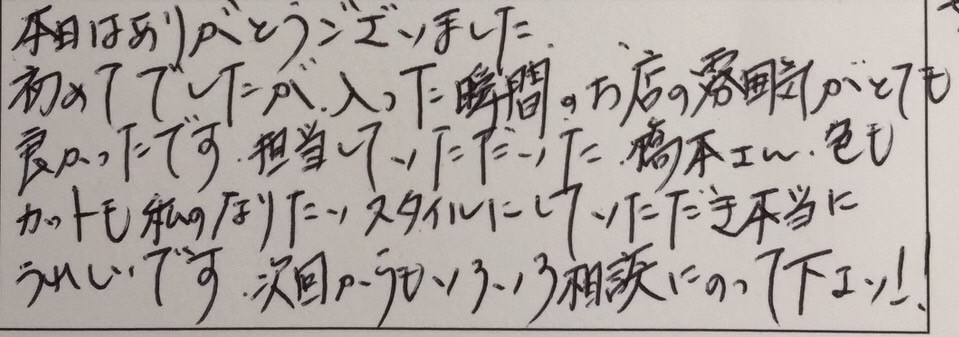 本日はありがとうございました.
初めてでしたが、入った瞬間のお店の雰囲気がとても
良かったです.担当していただいた橋本さん、色も
カットも私のなりたいスタイルにしていただき本当に
うれしいです.次回からもいろいろ相談にのって下さい!